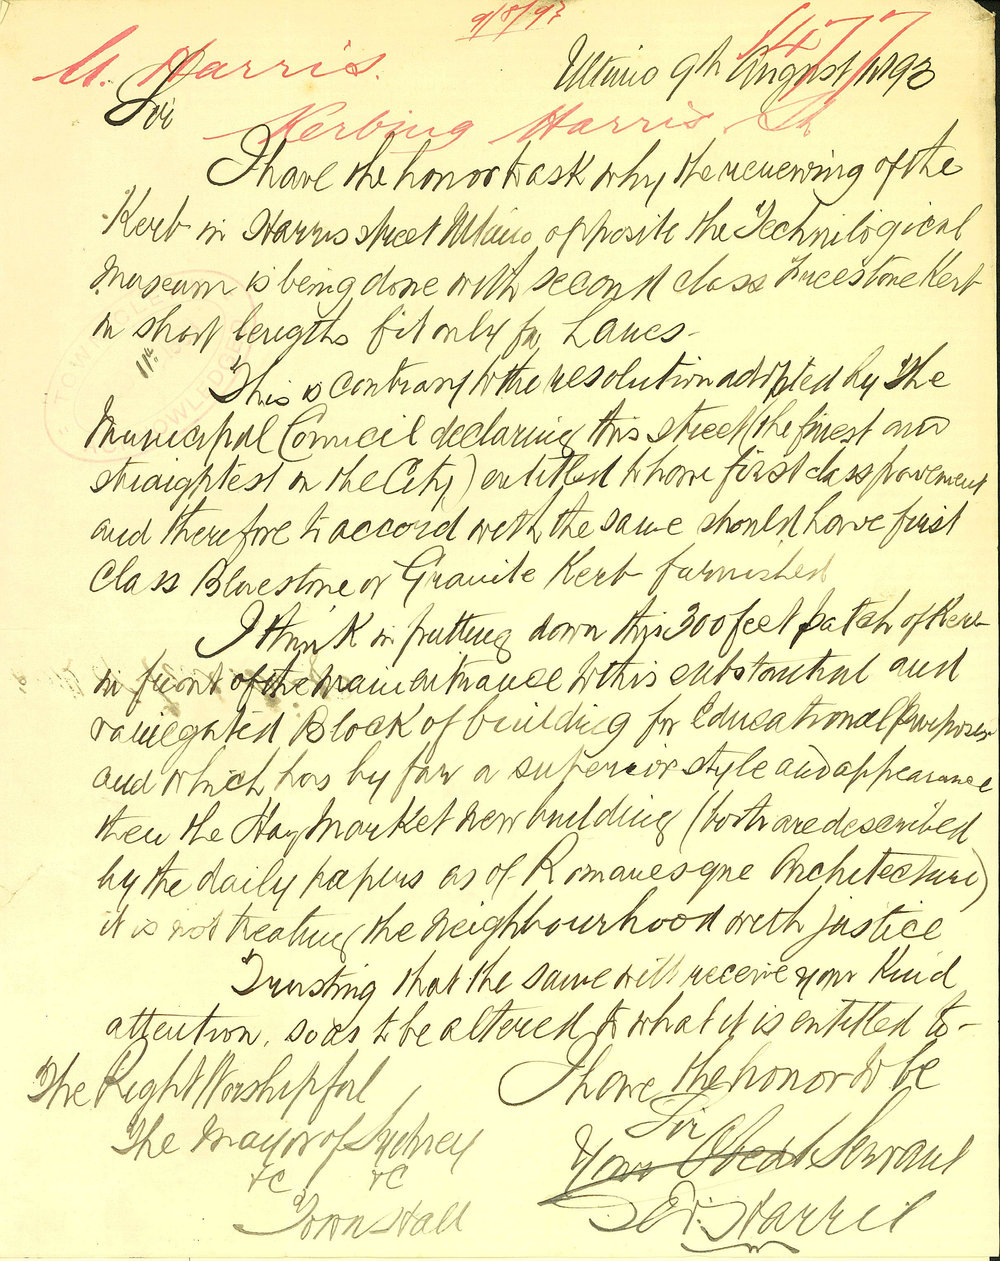 9/8/93
1477
M. Harris.
Ultimo 9th August 1893
Sir
Kerbing Harris St
I have the honor to ask why the renewing of the
Kerb in Harris street Ultimo opposite the Technilogical
Museum is being done with second class Freestone Kerb
in short lengths fit only for Lanes -
This is contrary to the resolution adopted by the
Municipal Council declaring this street (the finest and
straightest in the City) entitled to have first class pavement
and therefore to accord with the same should have first
class Bluestone or Granite Kerb furnished
I think in putting down this 300 feet patch of Kerb
in front of the main entrance to this substantial and
variegated Block of building for Educational Purposes
and which has by far a superior style and appearance
then the Haymarket new building (both are described
by the daily papers as of Romanesque Architecture)
it is not treating the neighbourhood with justice
Trusting that the same will receive your Kind
attention, so as to be altered to what it is entitled to -
I have the honor to be
Sir
Your Obedt Servant
Harris
The Right Worshipful
The Mayor of Sydney
&c &c
Town Hall
TOWN CLERK
11